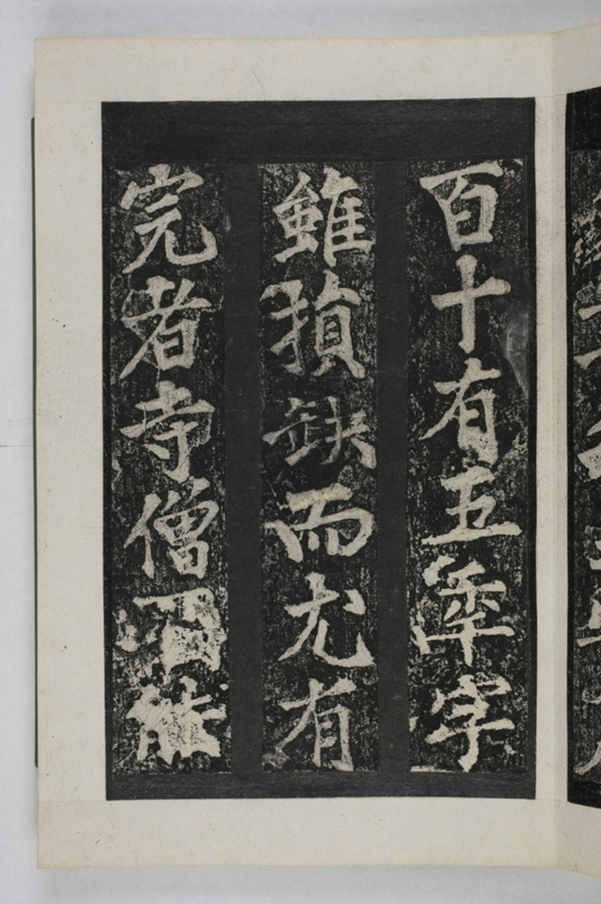 百十有五年字
雖損缺而尤有
完者寺僧